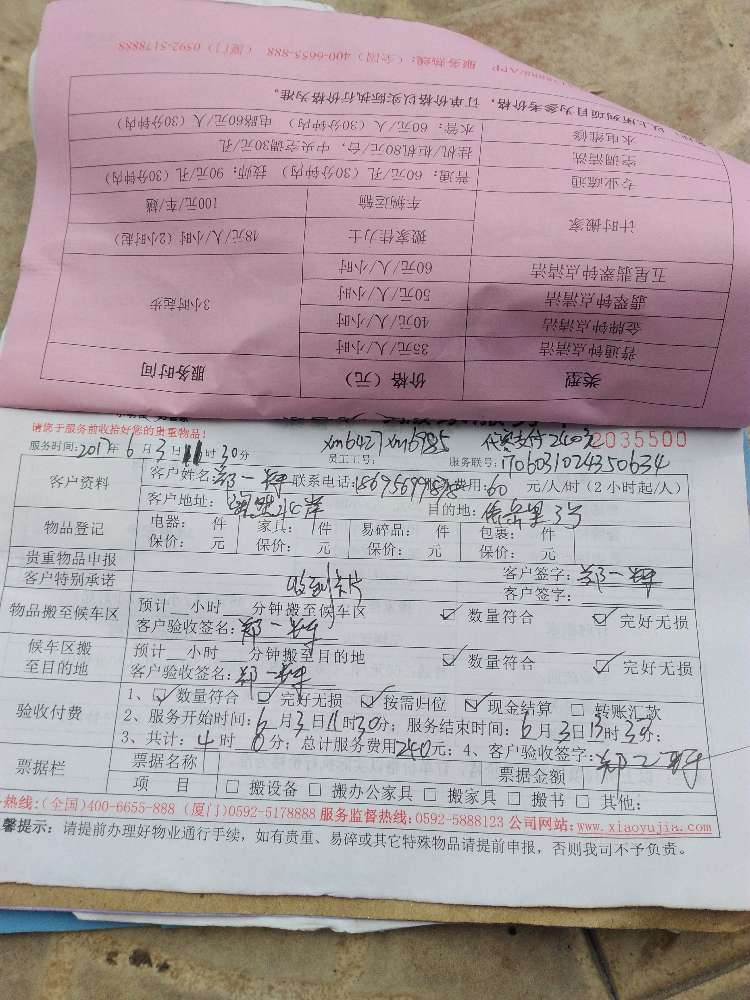 服务热线：(全国) 400-6655-888 (厦门) 0592-5178888
以上所列项目为参考价格，订单价格以实际执行价格为准。
水电维修 水管：60元/人（30分钟内） 电路60元/人（30分钟内）
空调清洗 挂机/柜机80元/台，中央空调30元/孔
专业疏通 普通：60元/孔（30分钟内） 技师：90元/孔（30分钟内）
计时搬家 车辆运输 100元/车/趟
搬家佳力士 48元/人/小时（2小时起）
五星翡翠钟点清洁 60元/人/小时
翡翠钟点清洁 50元/人/小时 3小时起步
金牌钟点清洁 40元/人/小时
普通钟点清洁 35元/人/小时
类型 价格（元） 服务时间
请您于服务前收拾好您的贵重物品！ xm6427 xm6985 2035500
服务时间：2017年6月3日11时30分 员工工号： 服务联号：1706031024350634
客户资料 客户姓名：郑一 联系电话： 费用：60 元/人/时（2小时起/人）
客户地址： 目的地： 3号
物品登记 电器： 件 家具： 件 易碎品： 件 包裹： 件
保价： 元 保价： 元 保价： 元 保价： 元
贵重物品申报 客户签字：郑一
客户特别承诺 收到卡片 客户签字：
物品搬至候车区 预计 小时 分钟搬至候车区 ☑ 数量符合 ☑ 完好无损
客户验收签名：郑一
候车区搬至目的地 预计 小时 分钟搬至目的地 ☑ 数量符合 ☑ 完好无损
客户验收签名：郑一
验收付费 1、☑ 数量符合 ☑ 完好无损 ☑ 按需归位 ☑ 现金结算 □ 转账汇款
2、服务开始时间：6月3日11时30分；服务结束时间：6月3日13时30分；
3、共计：4时0分；总计服务费用240元；4、客户验收签字：郑
票据栏 票据名称 票据金额
项 目 □ 搬设备 □ 搬办公家具 □ 搬家具 □ 搬书 □ 其他：
热线：(全国)400-6655-888 (厦门)0592-5178888 服务监督热线：0592-5888123 公司网站：www.xiaoyujia.com
馨提示：请提前办理好物业通行手续，如有贵重、易碎或其它特殊物品请提前申报，否则我司不予负责。